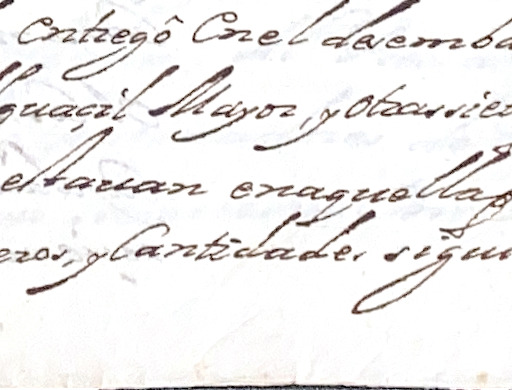 Entregô Enel desemba
lguaçil Mayor, y otrassien
estauan enaquella
eros, y Cantidades sigui